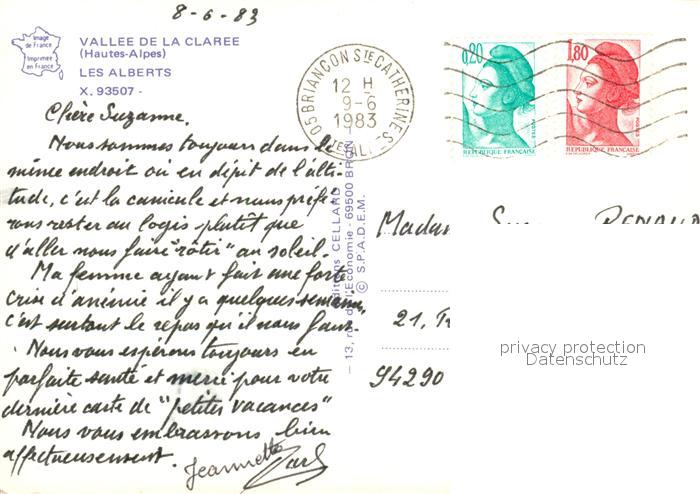 8-6-83
Image de France
Imprimée en France
VALLEE DE LA CLAREE
(Hautes-Alpes)
LES ALBERTS
X. 93507 -
Chère Suzanne,
Nous sommes toujours dans le
même endroit où en dépit de l'alti-
tude, c'est la canicule et nous préfé-
rons rester au logis plutôt que
d'aller nous faire "rôtir" au soleil.
Ma femme ayant fait une forte
crise d'anémie il y a quelques semaines,
c'est surtout le repos qu'il nous faut.
Nous vous espérons toujours en
parfaite santé et merci pour votre
dernière carte de "petites vacances"
Nous vous embrassons bien
affectueusement.
Jeannette
05 BRIANÇON STE CATHERINE
12 H
9-6
1983
0,20
POSTES
REPUBLIQUE FRANÇAISE
1,80
POSTES
REPUBLIQUE FRANÇAISE
Editions CELLARD
13, rue de l'Economie - 69500 BRON
© S.P.A.D.E.M.
Madam
21, Tr
94290
privacy protection
Datenschutz